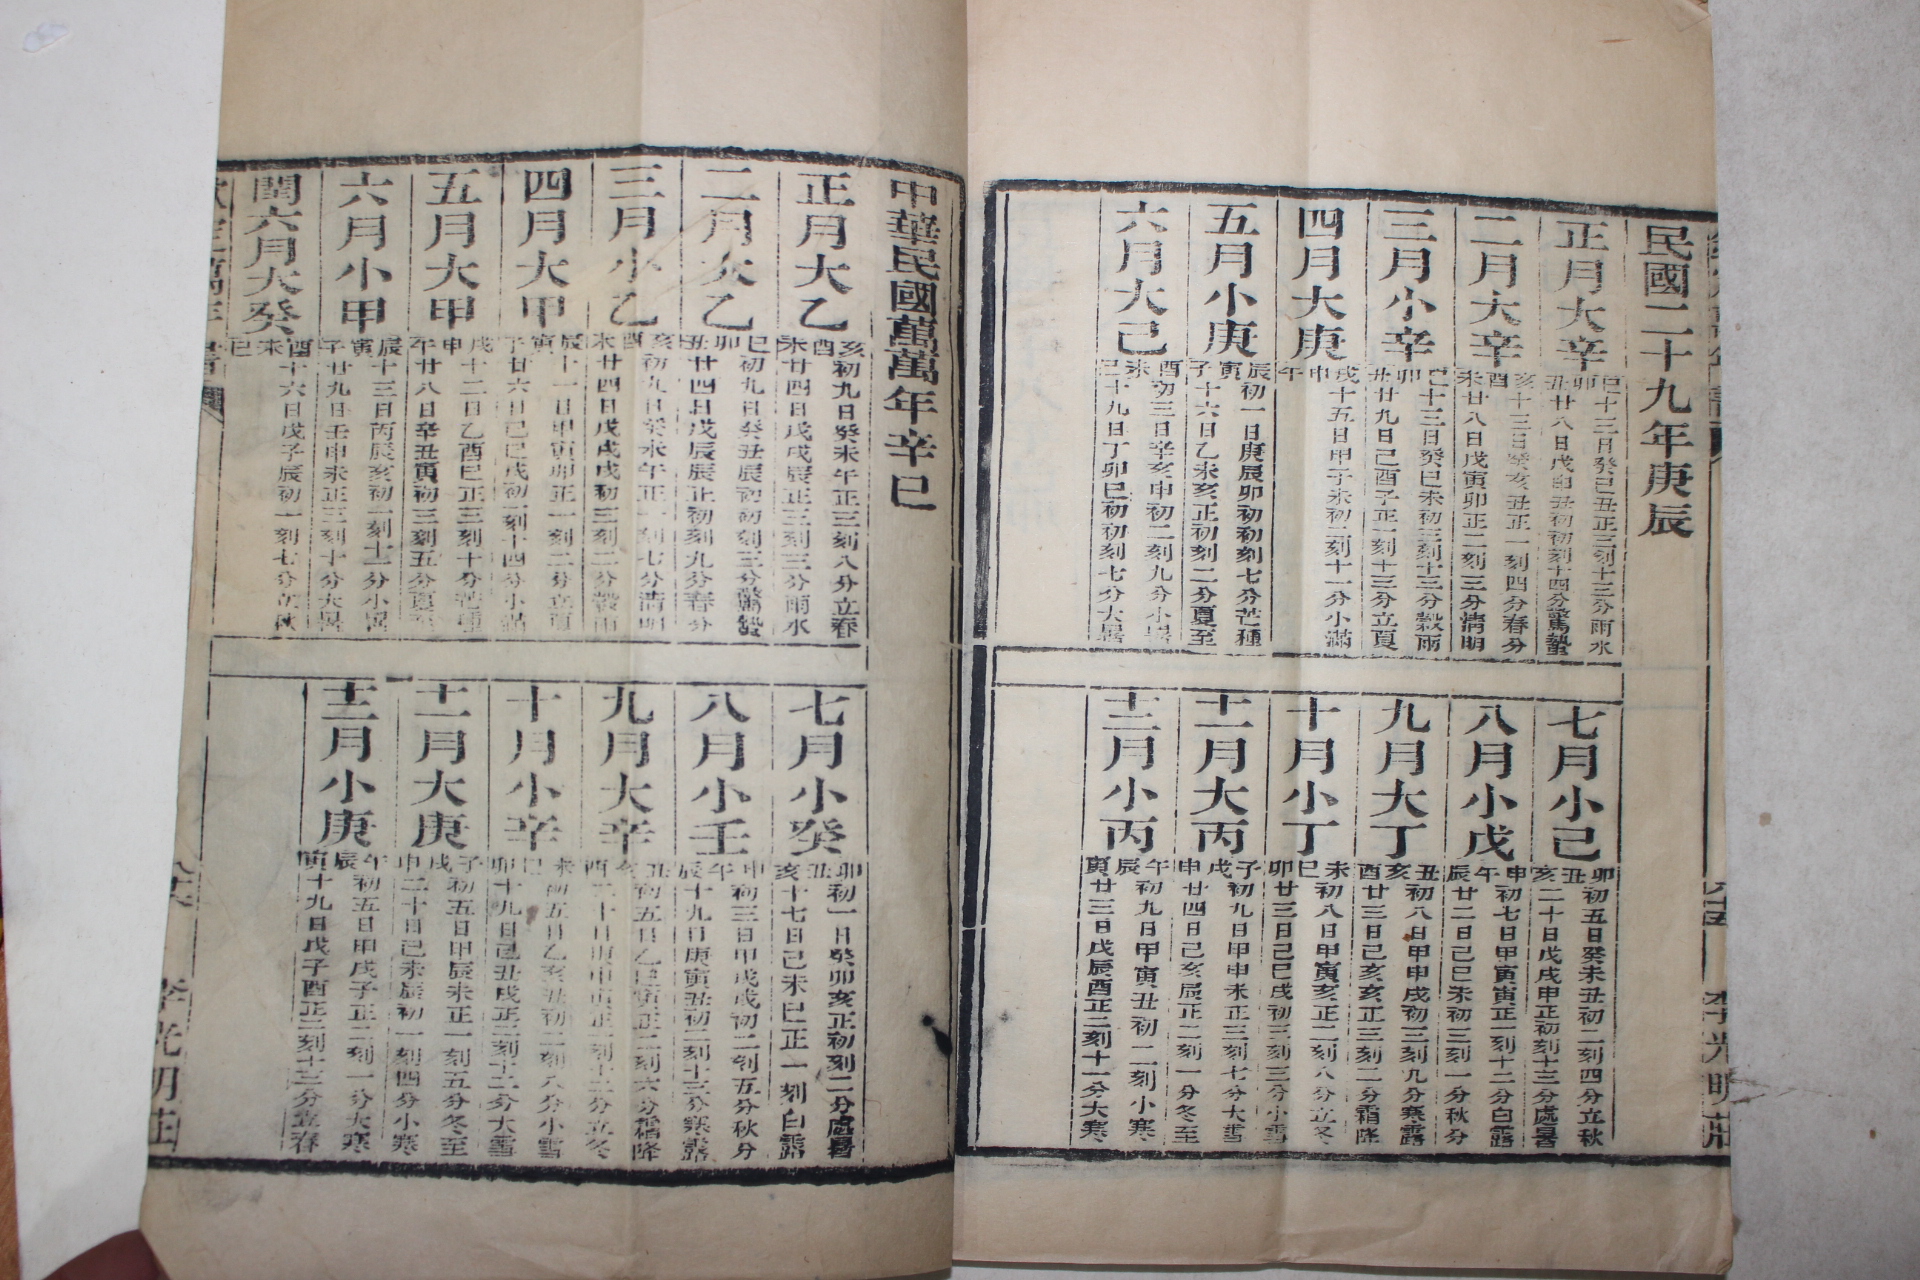 民國二十九年庚辰
正月大辛
巳卯丑
十三日癸巳丑正三刻十三分雨水
廿八日戊申丑初初刻十四分驚蟄
二月大辛
亥酉未
十三日癸亥丑正一刻四分春分
廿八日戊寅卯正二刻三分清明
三月小辛
巳卯丑
十三日癸巳未初三刻十三分穀雨
廿九日己酉子正一刻十三分立夏
四月大庚
戌申午
十五日甲子未初二刻十一分小滿
五月小庚
辰寅子
初一日庚辰卯初初刻七分芒種
十六日乙未亥正初刻二分夏至
六月大己
酉未巳
初三日辛亥申初二刻九分小暑
十九日丁卯巳初初刻七分大暑
七月小己
卯丑亥
初五日癸未丑初二刻四分立秋
二十日戊戌申正初刻十三分處暑
八月小戊
申午辰
初七日甲寅寅正一刻十二分白露
廿二日己巳未初三刻一分秋分
九月大丁
丑亥酉
初八日甲申戌初三刻九分寒露
廿三日己亥亥正三刻二分霜降
十月小丁
未巳卯
初八日甲寅亥正二刻八分立冬
廿三日己巳戌初三刻三分小雪
十一月大丙
子戌申
初九日甲申未正三刻七分大雪
廿四日己亥辰正二刻一分冬至
十二月小丙
午辰寅
初九日甲寅丑初二刻小寒
廿三日戊辰酉正二刻十一分大寒
李光明莊
中華民國萬萬年辛巳
正月大乙
亥酉未
初九日癸未午正三刻八分立春
廿四日戊戌辰正三刻三分雨水
二月大乙
巳卯丑
初九日癸丑辰初初刻三分驚蟄
廿四日戊辰辰正初刻九分春分
三月小乙
亥酉未
初九日癸未午正一刻七分清明
廿四日戊戌戌初三刻二分穀雨
四月大甲
辰寅子
十一日甲寅卯正一刻二分立夏
廿六日己巳戌初一刻十四分小滿
五月大甲
戌申午
十二日乙酉巳正三刻十分芒種
廿八日辛丑寅初三刻五分夏至
六月小甲
辰寅子
十三日丙辰亥初一刻十二分小暑
廿九日壬申未正三刻十分大暑
閏六月大癸
酉未巳
十六日戊子辰初一刻七分立秋
七月小癸
卯丑亥
初一日癸卯亥正初刻二分處暑
十七日己未巳正一刻白露
八月小壬
申午辰
初三日甲戌戌初二刻五分秋分
十九日庚寅丑初二刻十三分寒露
九月大辛
丑亥酉
初五日乙巳寅正二刻六分霜降
二十日庚申寅正一刻十二分立冬
十月小辛
未巳卯
初五日乙亥丑初二刻八分小雪
十九日己丑戌正二刻十二分大雪
十一月大庚
子戌申
初五日甲辰未正一刻五分冬至
二十日己未辰初一刻四分小寒
十二月小庚
午辰寅
初五日甲戌子正二刻一分大寒
十九日戊子酉正二刻十三分立春
李光明莊